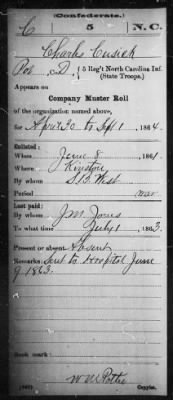 (Confederate.)
C 5 N.C.
Charles Cusick
Co. D, 5 Reg't North Carolina Inf.
(State Troops.)
Appears on
Company Muster Roll
of the organization named above,
for April 30 to Sept 1, 1864.
Enlisted:
When June 8, 1861
Where Kinston
By whom
Period war
Last paid:
By whom J.M. Jones
To what time July 1, 1863.
Present or absent Absent
Remarks: Sent to Hospital June
9. 1863.
Book mark:
(642)
Copyist.